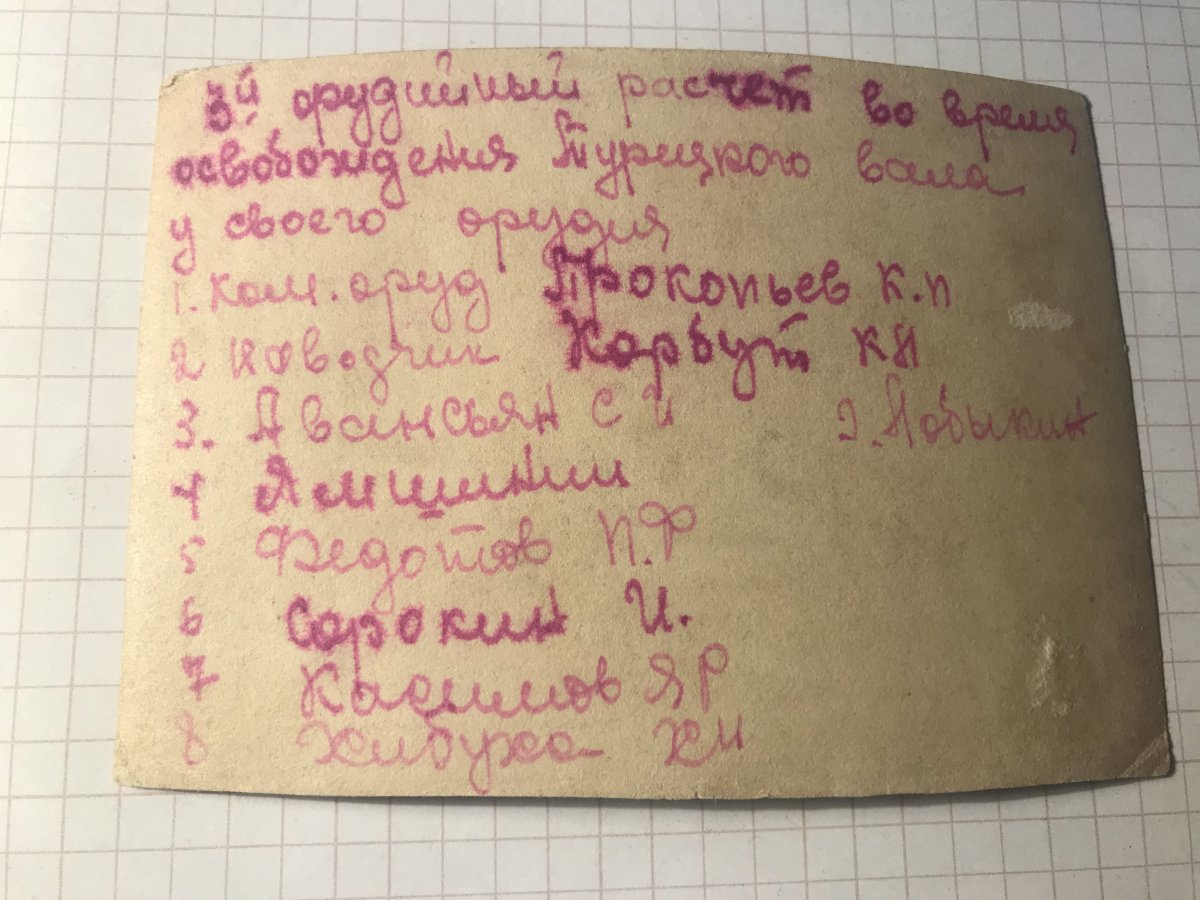 3й орудийный расчет во время
освобождения Турецкого вала
у своего орудия
1. Ком. оруд Прокопьев К.П
2 Наводчик Корбут КН
3. Авансьян С И 9. Лобыкин
4 Ямшинин
5 Федотов П.Ф
6 Сорокин И.
7 Касимов Я Р
8